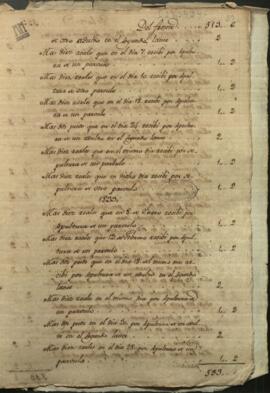 Del frente 513.. 6
a otro adulto en el segundo lance 2
Mas diez reales que en el dia 7. recibi por sepultura
a un parvulo 1.. 2
Mas diez reales que en el dia recibi por sepul
tura a otro parvulo 1.. 2
Mas diez reales que en el dia 18. recibi por sepultura
a un parvulo 1.. 2
Mas dos pesos que en el dia recibi por sepultura
a un adulto en el segundo lance 2
Mas diez reales que en el mismo dia recibi por se
pultura a un parvulo 1.. 2
Mas diez reales que en dicho dia recibi por se
pultura a otro parvulo 1.. 2
1833.
Mas diez reales que en 8. de Enero recibi por
sepultura a un parvulo 1.. 2
Mas diez reales que en 12. de Febrero recibi por sepul
tura a un parvulo 1.. 2
Mas dos pesos que en el dia 18. del mismo mes re
cibi por sepultura a un adulto en el segundo
lance 2
Mas diez reales en el mismo dia por sepultura a
un parvulo 1.. 2
Mas dos pesos en el dia 20. por sepultura a un adul
to en el segundo lance 2
Mas diez reales en el dia 28. por sepultura a un
parvulo 1.. 2
533..